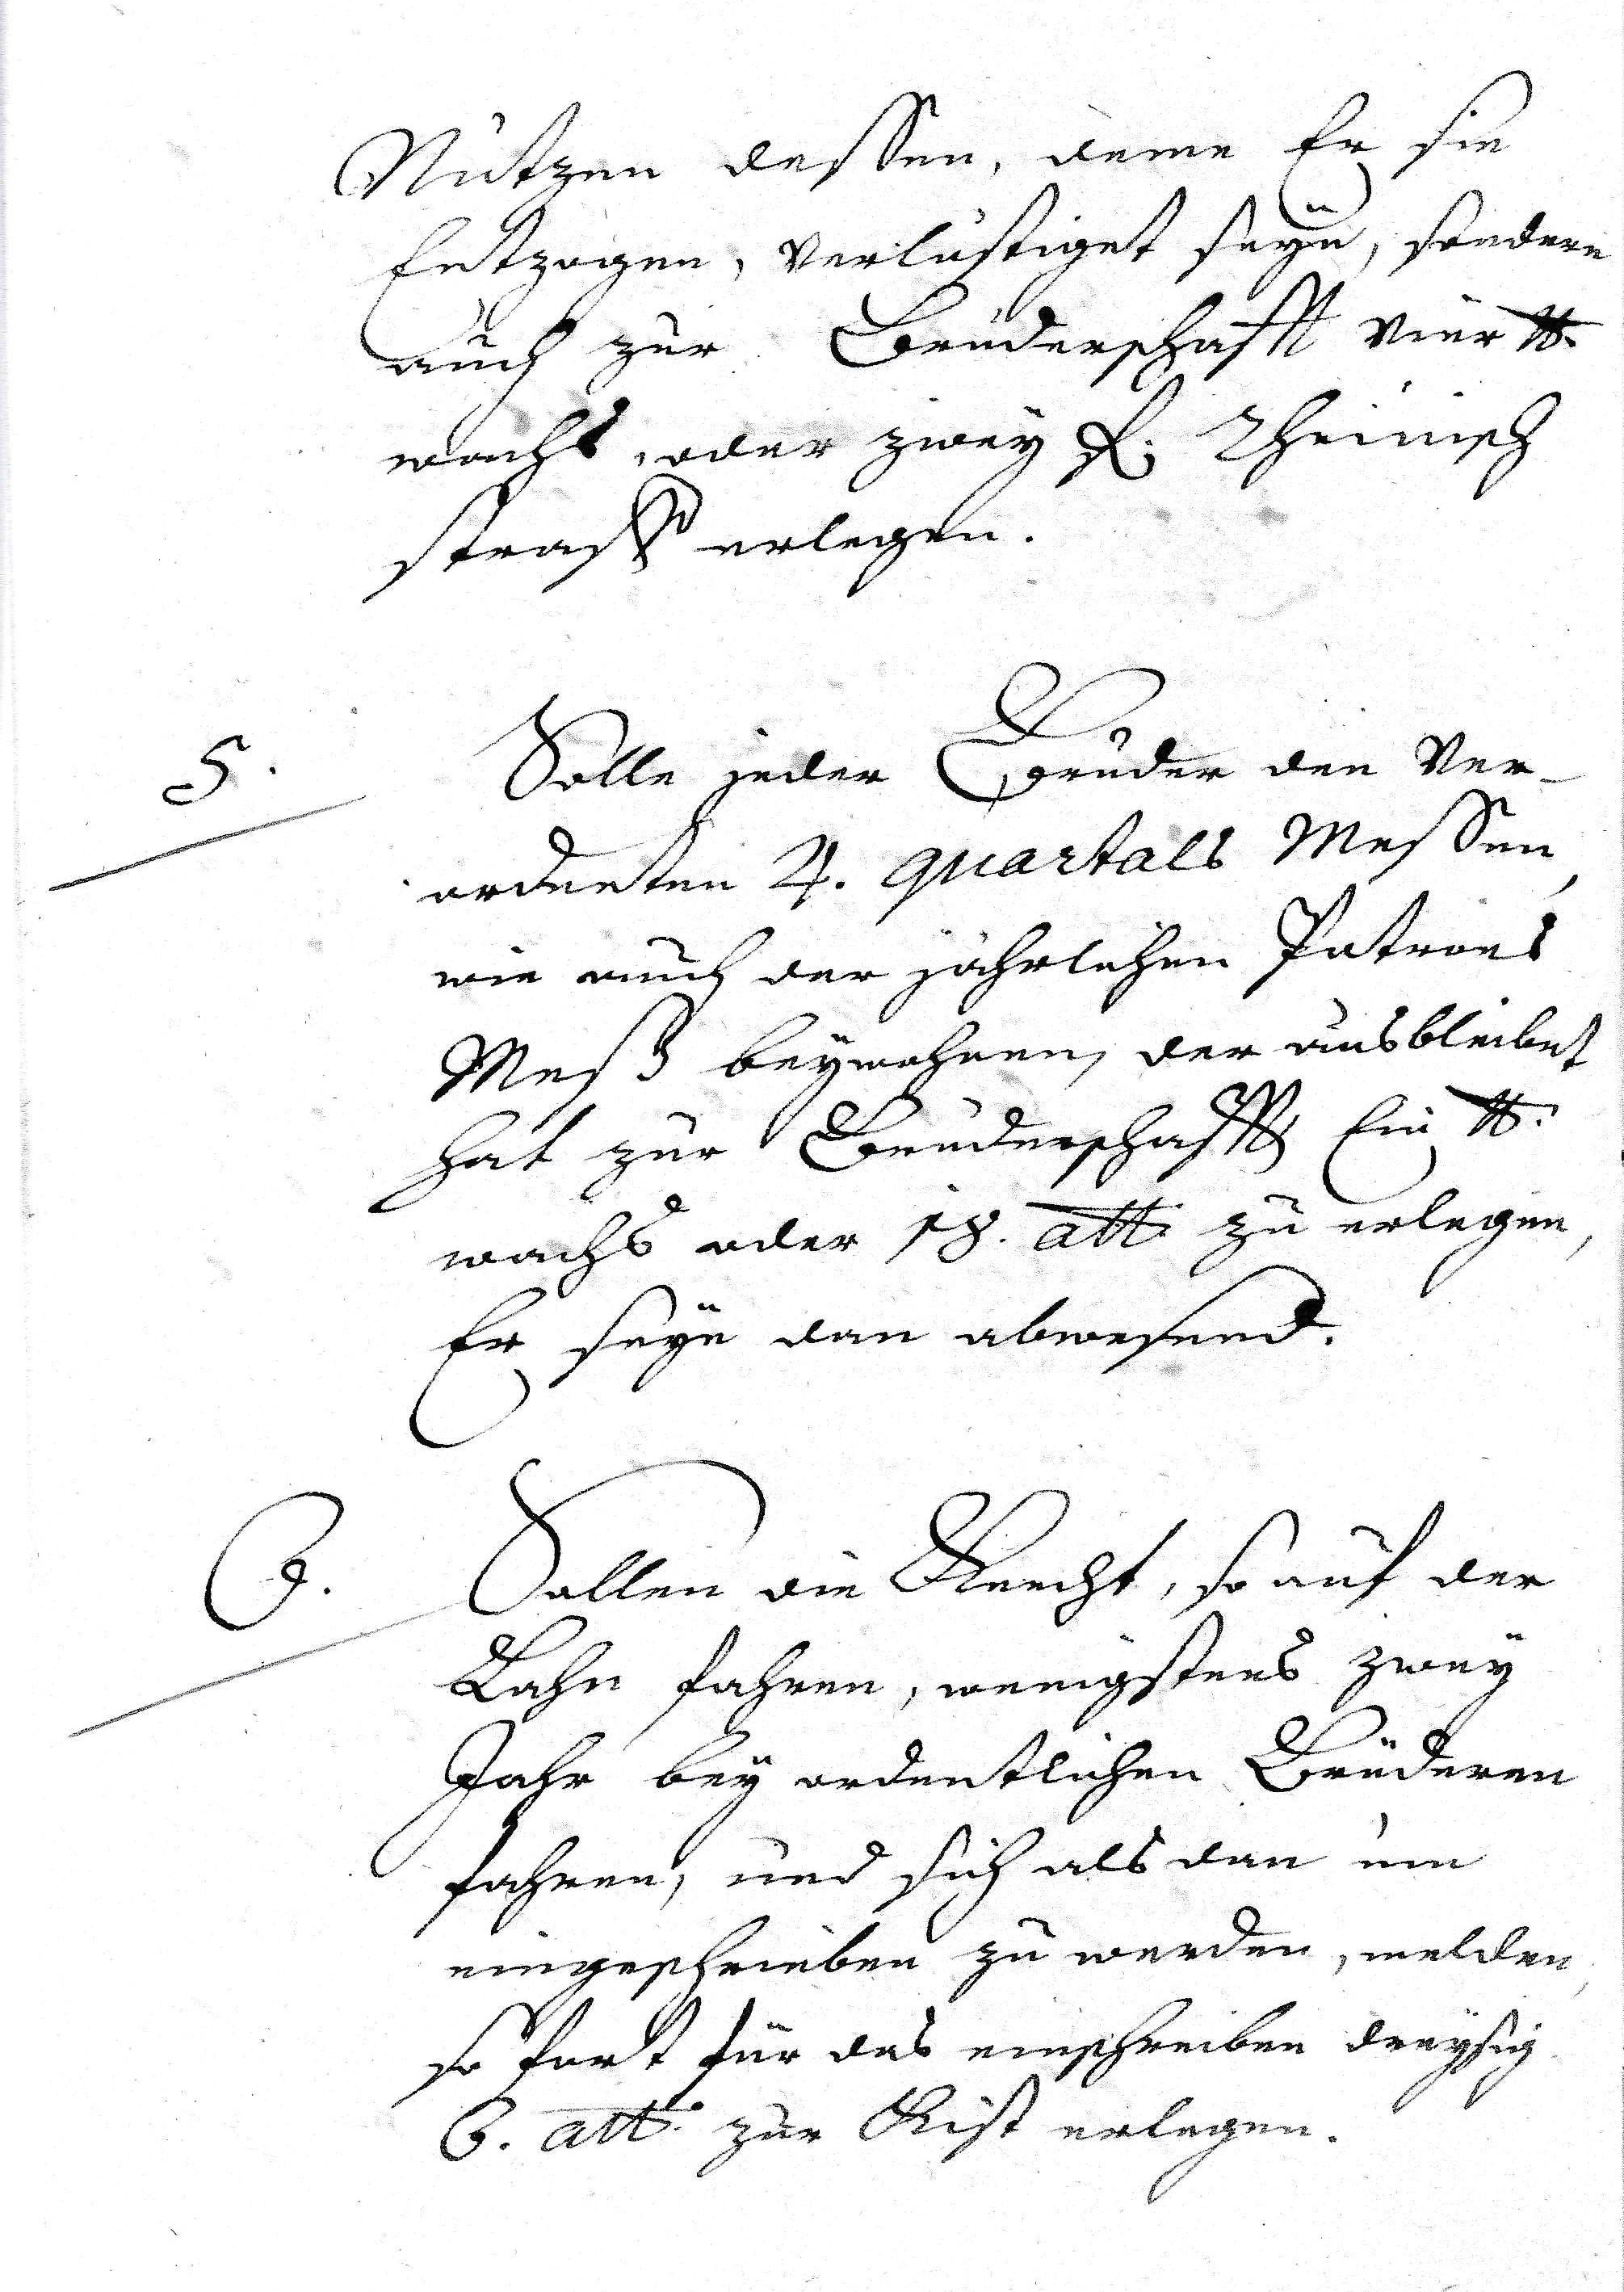 Nutzen dessen, deme Er sie
Entzogen, Verlustiget seÿn, sondern
auch zur Bruderschafft Vier ℔.
wachs, oder zweÿ fl. Rheinisch
straff erlegen.
5.
Solle jeder Bruder den Ver-
ordneten 4. quartals Messen,
wie auch der jährlichen Patrons
Meß beÿwohnen, der ausbleibet
hat zur Bruderschafft Ein ℔.
wachs oder 18. alb. zu erlegen,
Er seÿe dan abwesend.
6.
Sollen die Knecht, so auf der
Lahn fahren, wenigstens zweÿ
Jahr beÿ ordentlichen Brüderen
fahren, und sich als dan um
eingeschrieben zu werden, melden,
so fort für das einschreiben dreÿsig
6. alb. zur Kist erlegen.